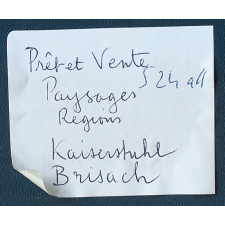 Prêt et Vente
5 24 all
Paysages
Regions
Kaiserstuhl
Brisach